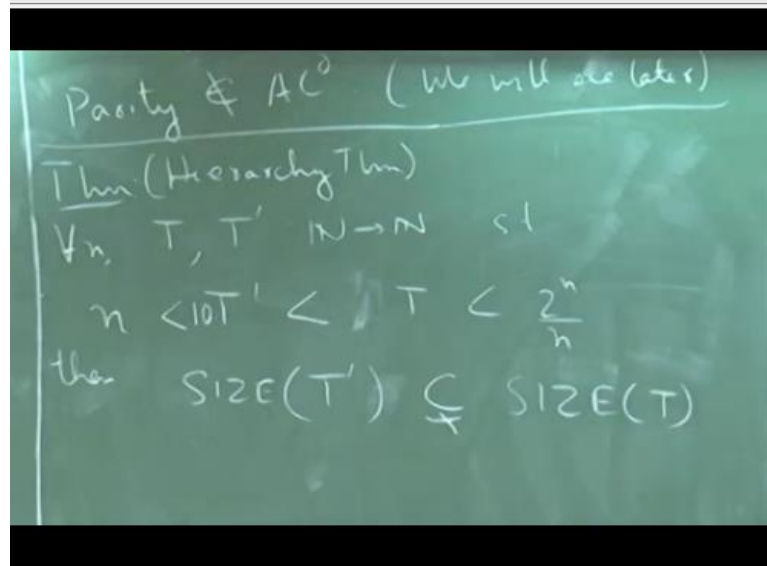 Parity ∉ AC⁰ (We will see later)
Thm (Hierarchy Thm)
∀n, T, T' IN→IN st
n < 10T' < T < 2ⁿ/n
then SIZE(T') ⊊ SIZE(T)